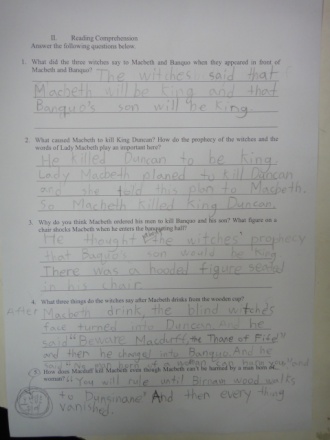 II. Reading Comprehension
Answer the following questions below.
1. What did the three witches say to Macbeth and Banquo when they appeared in front of
Macbeth and Banquo? The witches said that
Macbeth will be King and that
Banquo's son will be King.
2. What caused Macbeth to kill King Duncan? How do the prophecy of the witches and the
words of Lady Macbeth play an important hero?
He killed Duncan to be king.
Lady Macbeth planed to kill Duncan
and she told this plan to Macbeth.
So Macbeth killed King Duncan.
3. Why do you think Macbeth ordered his men to kill Banquo and his son? What figure on a
chair shocks Macbeth when he enters the banqueting hall?
He thought the witches' prophecy
that Baquo's son would be King
There was a hooded figure seated
in his chair.
4. What three things do the witches say after Macbeth drinks from the wooden cup?
After Macbeth drink, the blind witches
face turned into Duncan. And he
said "Beware Macduff, the Thane of Fife"
and then he changed into Banquo. And he
said
5. How does Macduff kill Macbeth even though Macbeth can't be harmed by a man born of
woman? "You will rule until Birnam wood walks
to Dunsinane" And then every thing
vanished.